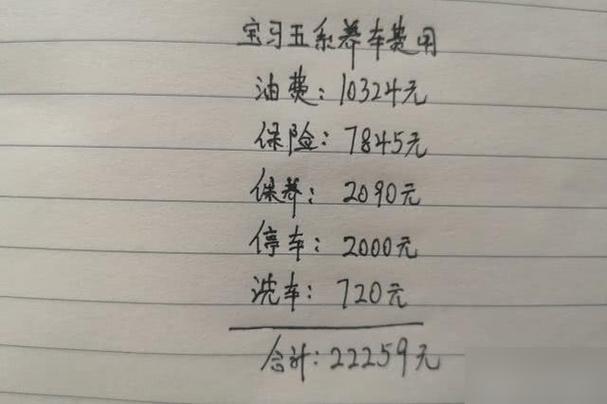 宝马五系养车费用
油费：10324元
保险：7845元
保养：2090元
停车：2000元
洗车：720元
合计：22259元